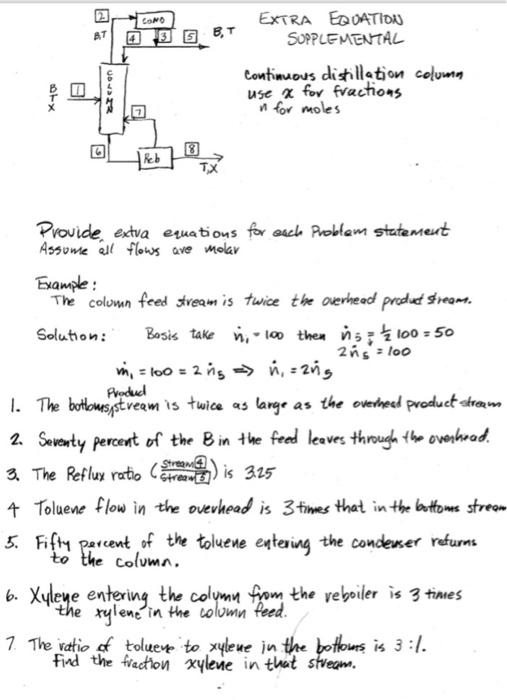 EXTRA EQUATION
SUPPLEMENTAL
continuous distillation column
use x for fractions
n for moles
2
COND
B,T
4
3
5
B,T
B
T
X
1
COLUMN
7
6
Reb
8
T,X
Provide extra equations for each Problem statement
Assume all flows are molar
Example:
The column feed stream is twice the overhead product stream.
Solution: Basis take ṅ₁ = 100 then ṅ5 = ½ 100 = 50
2ṅ5 = 100
ṁ₁ = 100 = 2ṅ5 ⇒ ṅ₁ = 2ṅ5
Product
1. The bottoms stream is twice as large as the overhead product stream
2. Seventy percent of the B in the feed leaves through the overhead.
3. The Reflux ratio (Stream 4 / Stream 5) is 3.25
4 Toluene flow in the overhead is 3 times that in the bottoms stream
5. Fifty percent of the toluene entering the condenser returns
to the column.
6. Xylene entering the column from the reboiler is 3 times
the xylene in the column feed.
7. The ratio of toluene to xylene in the bottoms is 3:1.
Find the fraction xylene in that stream.